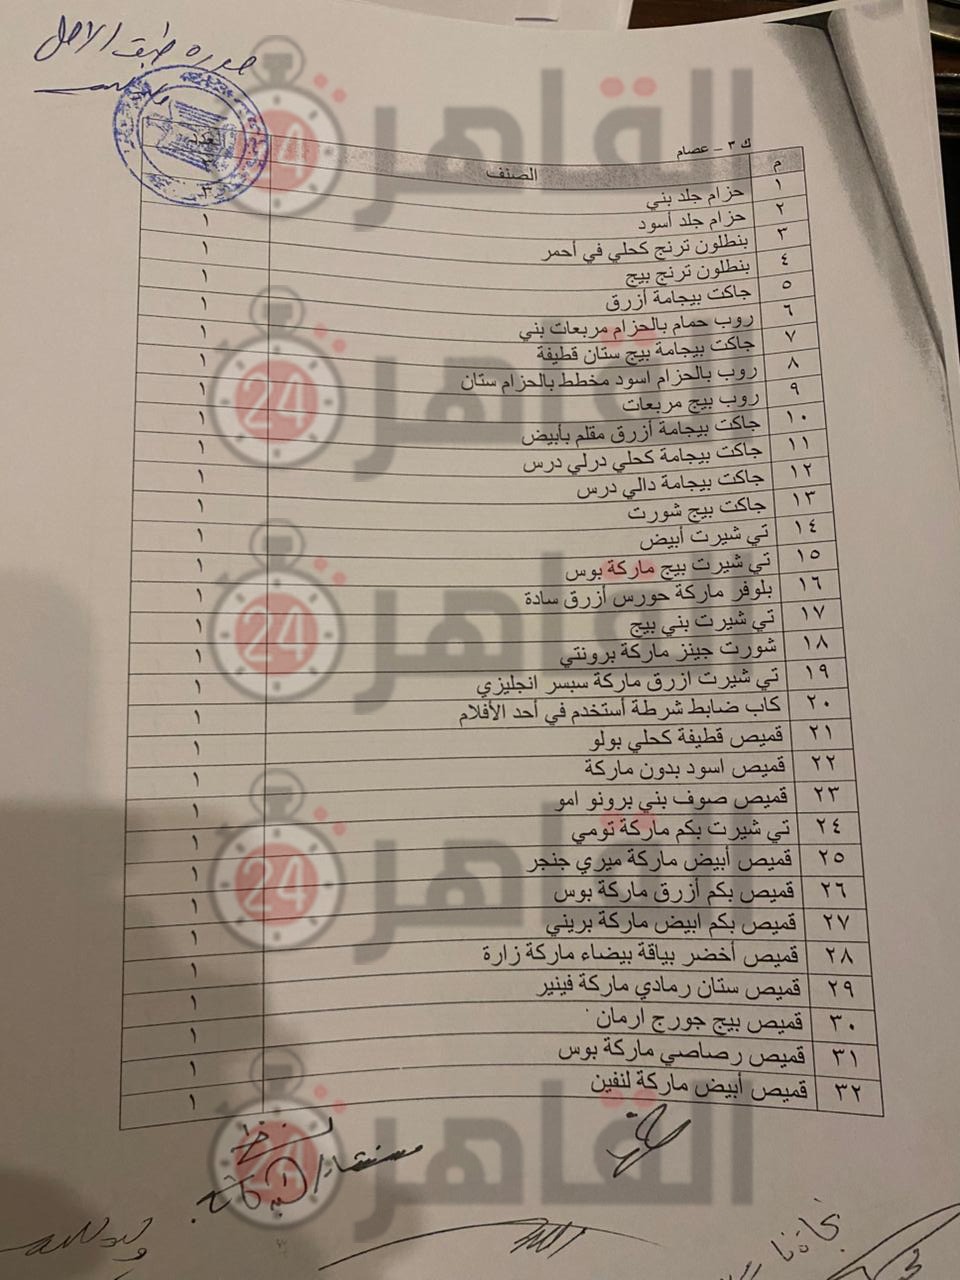 صورة طبق الأصل
ك ٣ - عصام
م الصنف
١ حزام جلد بني ٣
٢ حزام جلد أسود ١
٣ بنطلون ترنج كحلي في أحمر ١
٤ بنطلون ترنج بيج ١
٥ جاكت بيجامة أزرق ١
٦ روب حمام بالحزام مربعات بني ١
٧ جاكت بيجامة بيج ستان قطيفة ١
٨ روب بالحزام اسود مخطط بالحزام ستان ١
٩ روب بيج مربعات ١
١٠ جاكت بيجامة أزرق مقلم بأبيض ١
١١ جاكت بيجامة كحلي درلي درس ١
١٢ جاكت بيجامة دالي درس ١
١٣ جاكت بيج شورت ١
١٤ تي شيرت أبيض ١
١٥ تي شيرت بيج ماركة بوس ١
١٦ بلوفر ماركة حورس أزرق سادة ١
١٧ تي شيرت بني بيج ١
١٨ شورت جينز ماركة برونتي ١
١٩ تي شيرت ازرق ماركة سبسر انجليزي ١
٢٠ كاب ضابط شرطة أستخدم في أحد الأفلام ١
٢١ قميص قطيفة كحلي بولو ١
٢٢ قميص اسود بدون ماركة ١
٢٣ قميص صوف بني برونو امو ١
٢٤ تي شيرت بكم ماركة تومي ١
٢٥ قميص أبيض ماركة ميري جنجر ١
٢٦ قميص بكم أزرق ماركة بوس ١
٢٧ قميص بكم ابيض ماركة بريني ١
٢٨ قميص أخضر بياقة بيضاء ماركة زارة ١
٢٩ قميص ستان رمادي ماركة فينير ١
٣٠ قميص بيج جورج ارمان ١
٣١ قميص رصاصي ماركة بوس ١
٣٢ قميص أبيض ماركة لنفين ١
القاهرة 24
القاهرة 24
القاهرة 24
القاهرة 24
القاهرة 24